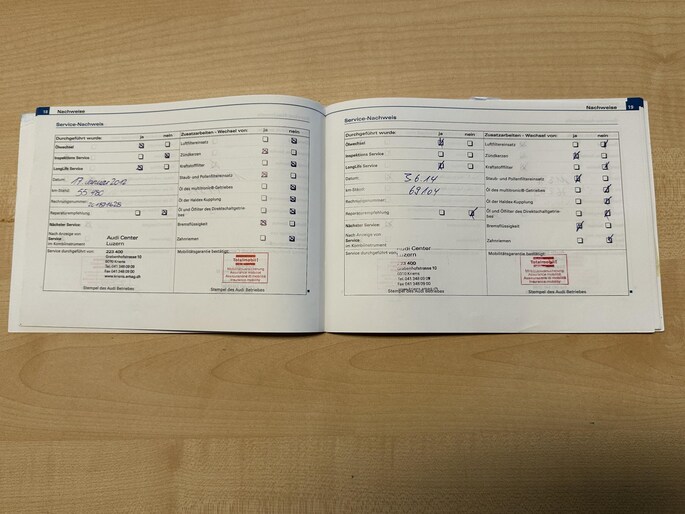 18 Nachweise
Service-Nachweis
Durchgeführt wurde: ja nein
Ölwechsel
Inspektions Service
LongLife Service
Datum: 17. Januar 2012
km-Stand: 55'480
Rechnungsnummer:
Reparaturempfehlung
Nächster Service:
Nach Anzeige von
Service
im Kombiinstrument
Service durchgeführt von:
Audi Center
Luzern
223 400
Grabenhofstrasse 10
6010 Kriens
Stempel des Audi Betriebes
Zusatzarbeiten - Wechsel von: ja nein
Luftfiltereinsatz
Zündkerzen
Kraftstofffilter
Staub- und Pollenfiltereinsatz
Öl des multitronic®-Getriebes
Öl der Haldex-Kupplung
Öl und Ölfilter des Direktschaltgetrie-
bes
Bremsflüssigkeit
Zahnriemen
Mobilitätsgarantie bestätigt:
totalmobil!
Nachweise 19
Service-Nachweis
Durchgeführt wurde: ja nein
Ölwechsel
Inspektions Service
LongLife Service
Datum: 3.6.14
km-Stand: 69104
Rechnungsnummer:
Reparaturempfehlung
Nächster Service:
Nach Anzeige von
Service
im Kombiinstrument
Service durchgeführt von:
Audi Center
Luzern
223 400
Grabenhofstrasse 10
6010 Kriens
Stempel des Audi Betriebes
Zusatzarbeiten - Wechsel von: ja nein
Luftfiltereinsatz
Zündkerzen
Kraftstofffilter
Staub- und Pollenfiltereinsatz
Öl des multitronic®-Getriebes
Öl der Haldex-Kupplung
Öl und Ölfilter des Direktschaltgetrie-
bes
Bremsflüssigkeit
Zahnriemen
Mobilitätsgarantie bestätigt:
totalmobil!